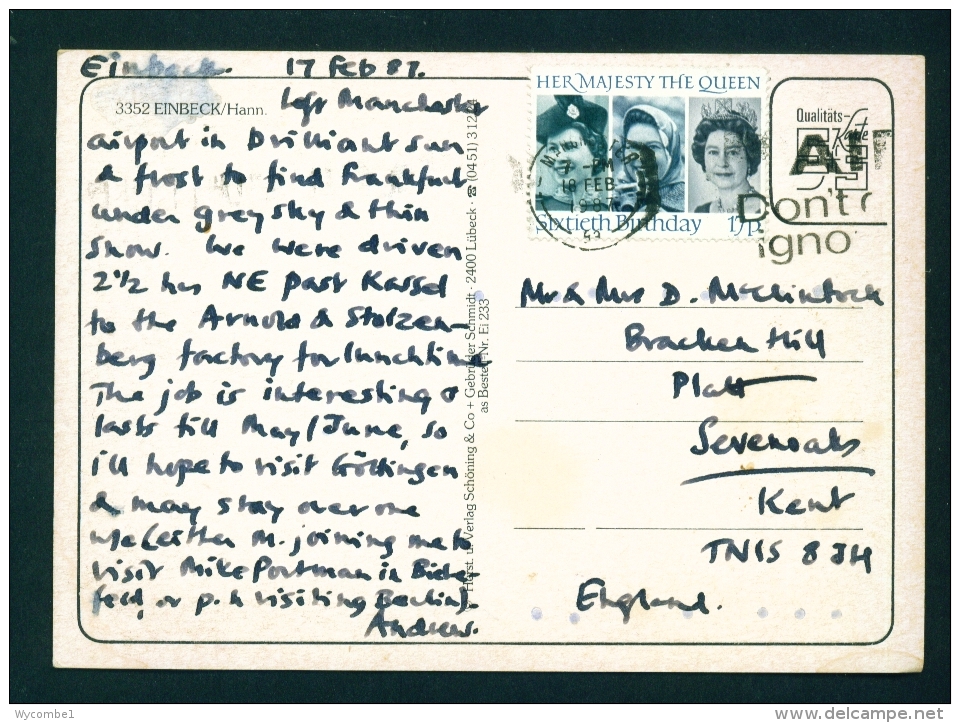 Einbeck. 17 Feb 87.
3352 EINBECK/Hann.
Left Manchester
airport in brilliant sun
& frost to find Frankfurt
under grey sky & thin
snow. We were driven
2½ hrs NE past Kassel
to the Arnold & Stolzen-
berg factory for lunchtime
The job is interesting &
lasts till May/June, so
i'll hope to visit Göttingen
& may stay over one
w/e (either M. joining me to
visit Mike Portman in Biele-
feld, or p.h visiting Berlin).
Andrew.
Horst. u. Verlag Schöning & Co + Gebrüder Schmidt · 2400 Lübeck · ☎ (0451) 3122
as Bestell-Nr. Ei 233
HER MAJESTY THE QUEEN
Sixtieth Birthday 17p
-PM
18 FEB
1987
Qualitäts-
Karte
Don't
igno
Mr & Mrs D. McClintock
Bracken Hill
Platt
Sevenoaks
Kent
TN15 8JH
England.
Wycombe1
www.delcampe.net